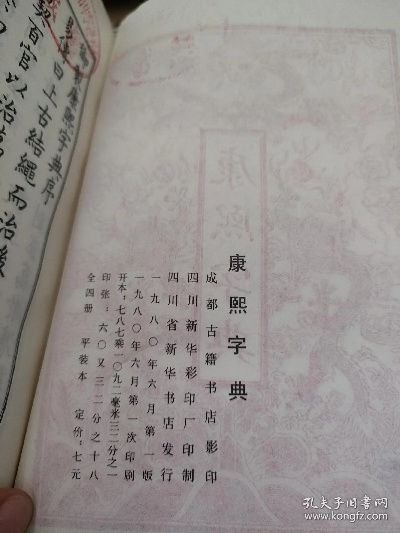 康熙字典
成都古籍书店影印
四川新华彩印厂印制
四川省新华书店发行
一九八〇年六月第一版
一九八〇年六月第一次印刷
开本：七八七乘一〇九二毫米三二分之一
印张：六〇又三二分之十八
全四册 平装本 定价：七元
康熙字典序
曰上古结繩而治後
契百官以治
孔夫子旧书网
www.kongfz.com